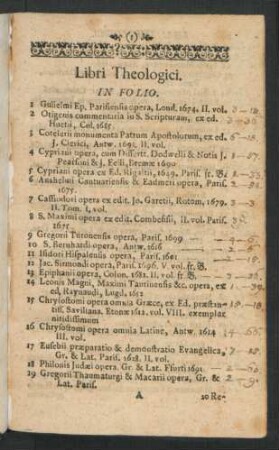 (1)
Libri Theologici.
IN FOLIO.
1 Gulielmi Ep. Parisiensis opera, Lond. 1674. II. vol.
2 Origenis commentaria in S. Scripturam, ex ed.
Huetii, Col. 1685
3 Cotelerii monumenta Patrum Apostolorum, ex ed.
J. Clerici, Antw. 1698. II. vol.
4 Cypriani opera, cum Dissert. Dodwelli & Notis J.
Pearsoni & J. Felli, Bremæ 1690
5 Cypriani opera ex Ed. Rigaltii, 1649. Paris. fr. B.
6 Anshelmi Cantuariensis & Eadmeri opera, Paris.
1675.
7 Cassiodori opera ex edit. Jo. Garetii, Rotom. 1679.
II Tom. I. vol.
8 S. Maximi opera ex edit. Combefisii, II. vol. Paris.
1675
9 Gregorii Turonensis opera, Paris. 1699
10 S. Bernhardi opera, Antw. 1616
11 Isidori Hispalensis opera, Paris. 1601
12 Jac. Sirmondi opera, Paris. 1696. V. vol. fr. B.
13 Epiphanii opera, Colon. 1682. II. vol. fr. B.
14 Leonis Magni, Maximi Taurinensis &c. opera, ex
ed. Raynaudi, Lugd. 1652
15 Chrysostomi opera omnia Græce, ex Ed. præstantiss.
Saviliana. Etonæ 1612. vol. VIII. exemplar
nitidissimum
16 Chrysostomi opera omnia Latine, Antw. 1614
III. vol.
17 Eusebii præparatio & demonstratio Evangelica,
Gr. & Lat. Paris. 1628. II. vol.
18 Philonis Judæi opera. Gr. & Lat. Fforti 1691
19 Gregorii Thaumaturgi & Macarii opera, Gr. &
Lat. Paris.
A
20 Re-